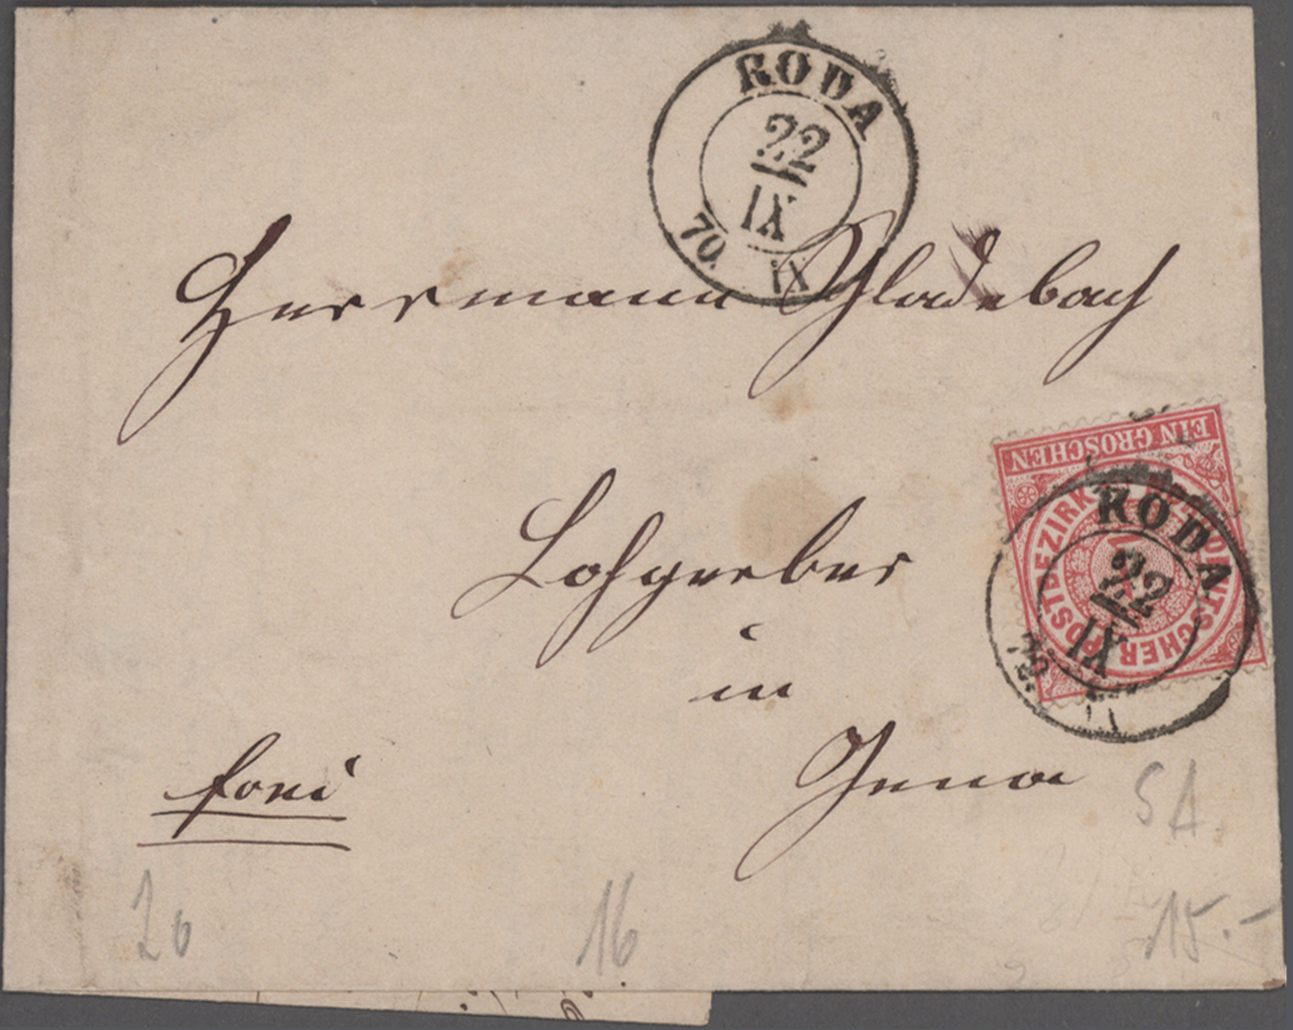 RODA
22
IX
70. IX
Herrmann Gladebach
EIN GROSCHEN
NORDDEUTSCHER POSTBEZIRK
1
RODA
22
IX
Lohgerber
in
Jena
frei
5A
20
16
15.-